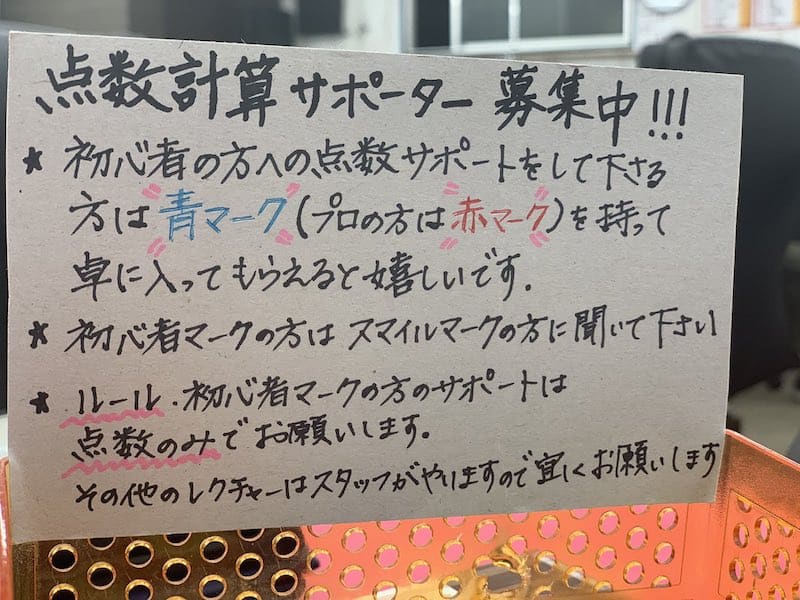 点数計算サポーター募集中!!!
★ 初心者の方への点数サポートをして下さる
方は青マーク(プロの方は赤マーク)を持って
卓に入ってもらえると嬉しいです.
★ 初心者マークの方は スマイルマークの方に聞いて下さい
★ ルール・初心者マークの方のサポートは
点数のみでお願いします。
その他のレクチャーはスタッフがやりますので宜しくお願いします